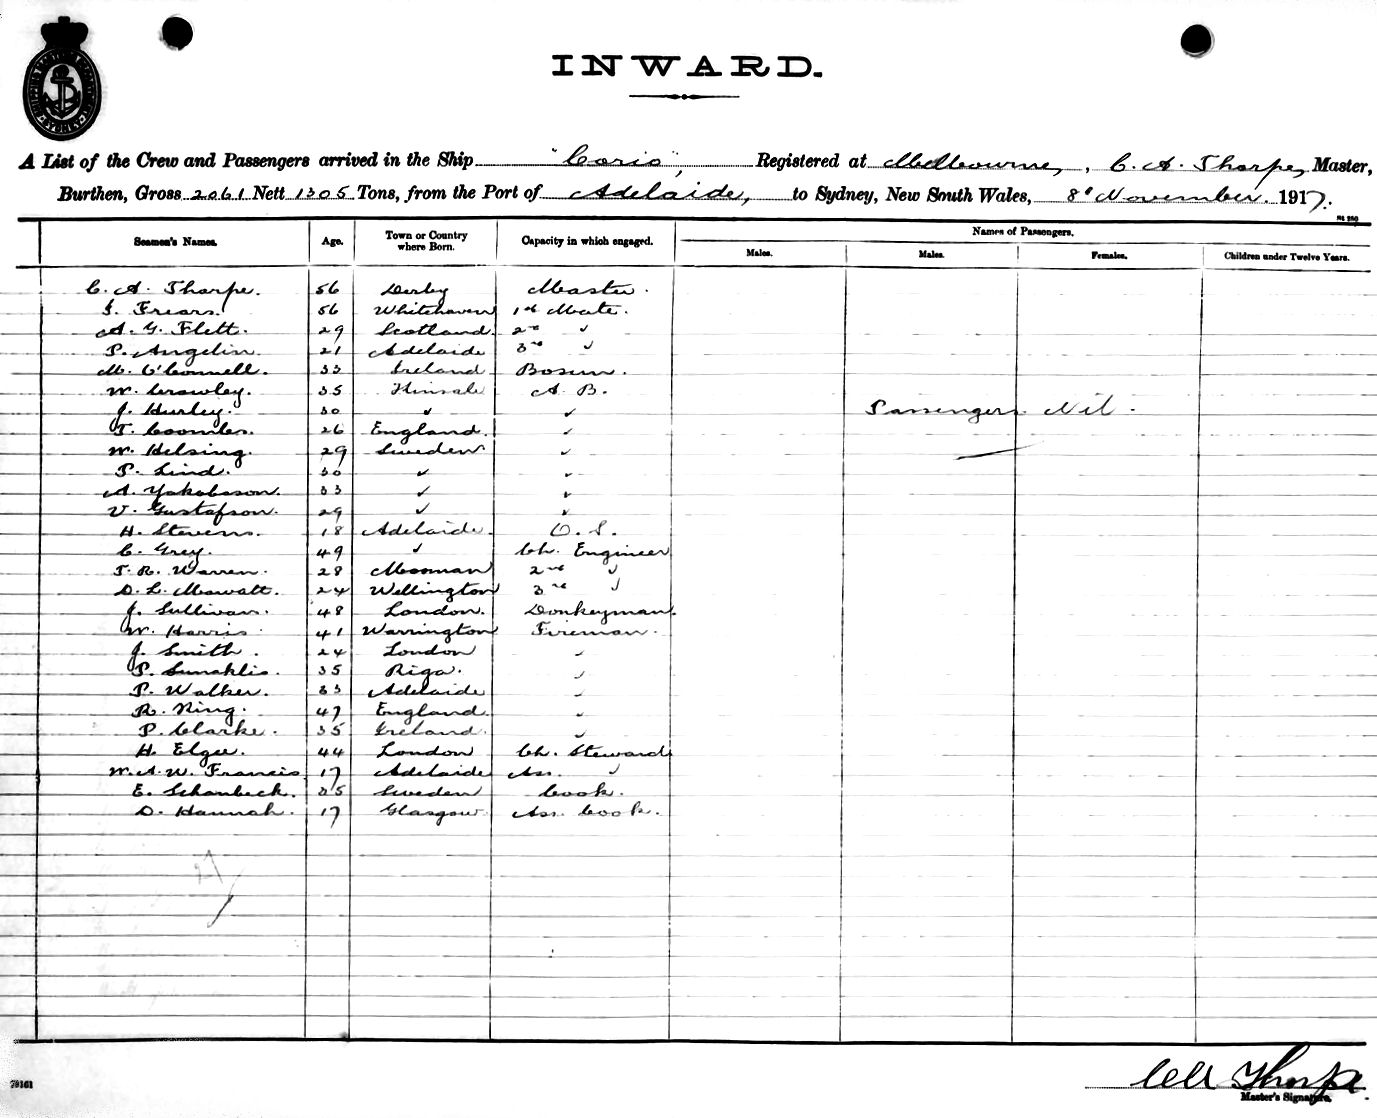 SHIPPING MASTER'S DEPARTMENT SYDNEY
INWARD.
A List of the Crew and Passengers arrived in the Ship "Corio", Registered at Melbourne, C. A. Tharpe, Master,
Burthen, Gross 2061 Nett 1305 Tons, from the Port of Adelaide, to Sydney, New South Wales, 8th November 1917.
Seamen's Names. Age. Town or Country where Born. Capacity in which engaged. Names of Passengers.
Males. Males. Females. Children under Twelve Years.
C. A. Tharpe. 56 Derby Master.
J. Frears. 56 Whitehaven 1st Mate.
A. G. Flett. 29 Scotland. 2nd "
P. Angelin. 21 Adelaide 3rd "
M. O'Connell. 33 Ireland Bosun.
W. Crowley. 35 Kinsale A. B.
J. Hurley. 30 " " Passengers Nil.
T. Coombes. 26 England. "
W. Helsing. 29 Sweden "
P. Lind. 30 " "
A. Yakobsson. 33 " "
V. Gustafson. 29 " "
H. Stevens. 18 Adelaide. O. S.
C. Grey. 49 " Ch. Engineer
T. R. Warren. 28 Mosman 2nd "
D. L. Mowatt. 24 Wellington 3rd "
J. Sullivan. 48 London. Donkeyman.
W. Harris. 41 Warrington Fireman.
J. Smith. 24 London "
P. 35 Riga. "
P. Walker. 33 Adelaide "
R. King. 47 England. "
P. Clarke. 35 Ireland. "
H. Elgee. 44 London Ch. Steward
W. A. W. Francis 17 Adelaide Ass. "
E. Schonbeck. 35 Sweden Cook.
D. Hannah. 17 Glasgow Ass. Cook.
27
79161
C A Tharpe
Master's Signature.